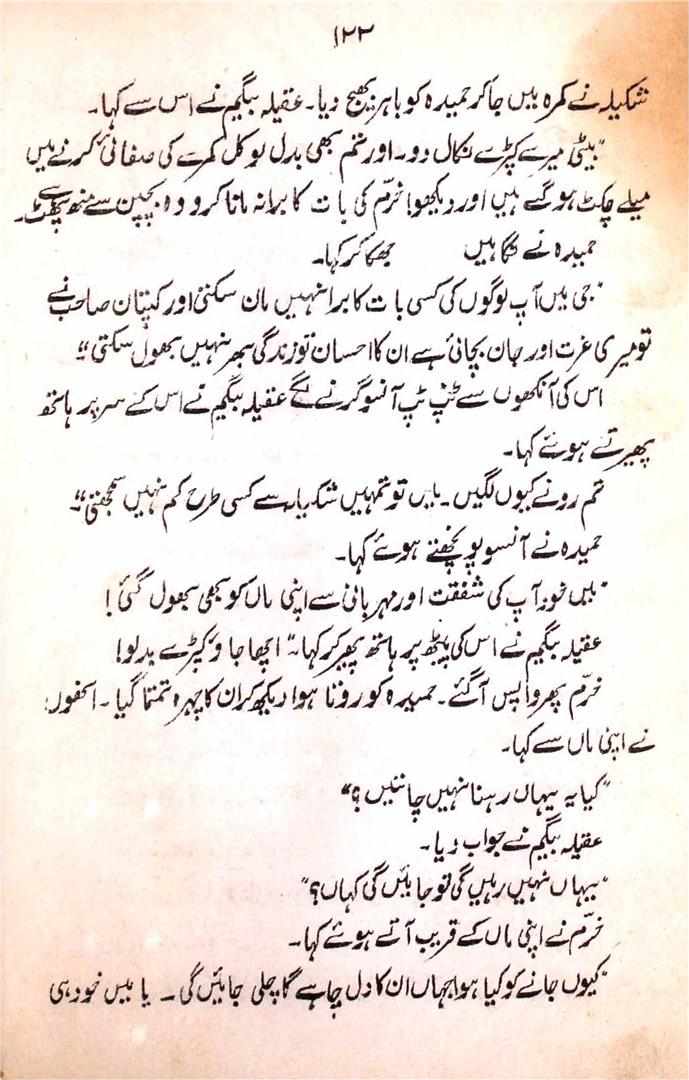 ۱۲۲
شکیلہ نے کمرہ میں جا کر حمیدہ کو باہر بھیج دیا۔ عقیلہ بیگم نے اس سے کہا۔
"بیٹی میرے کپڑے نکال دو۔ اور تم بھی بدل لو کل کمرے کی صفائی کرنے میں
میلے چکٹ ہو گئے ہیں اور دیکھو! خرّم کی بات کا برا نہ مانا کرو وہ بچپن سے منھ پھٹ ہے۔
حمیدہ نے نگاہیں جھکا کر کہا۔
"جی میں آپ لوگوں کی کسی بات کا برا نہیں مان سکتی اور کپتان صاحب نے
تو میری عزت اور جان بچائی ہے ان کا احسان تو زندگی بھر نہیں بھول سکتی"
اس کی آنکھوں سے ٹپ ٹپ آنسو گرنے لگے عقیلہ بیگم نے اس کے سر پر ہاتھ
پھیرتے ہوئے کہا۔
تم رونے کیوں لگیں۔ میں تو تمہیں شکیلہ سے کسی طرح کم نہیں سمجھتی"۔
حمیدہ نے آنسو پونچھتے ہوئے کہا۔
"میں خود آپ کی شفقت اور مہربانی سے اپنی ماں کو بھی بھول گئی!
عقیلہ بیگم نے اس کی پیٹھ پر ہاتھ پھیر کر کہا۔" اچھا جاؤ کپڑے بدلو!
خرّم پھر واپس آ گئے۔ حمیدہ کو روتا ہوا دیکھ کر ان کا چہرہ تمتما گیا۔ انھوں
نے اپنی ماں سے کہا۔
"کیا یہ یہاں رہنا نہیں چاہتیں؟"
عقیلہ بیگم نے جواب دیا۔
"یہاں نہیں رہیں گی تو جائیں گی کہاں؟"
خرّم نے اپنی ماں کے قریب آتے ہوئے کہا۔
"کیوں جانے کو کیا ہوا جہاں ان کا دل چاہے گا چلی جائیں گی۔ یا میں خود ہی